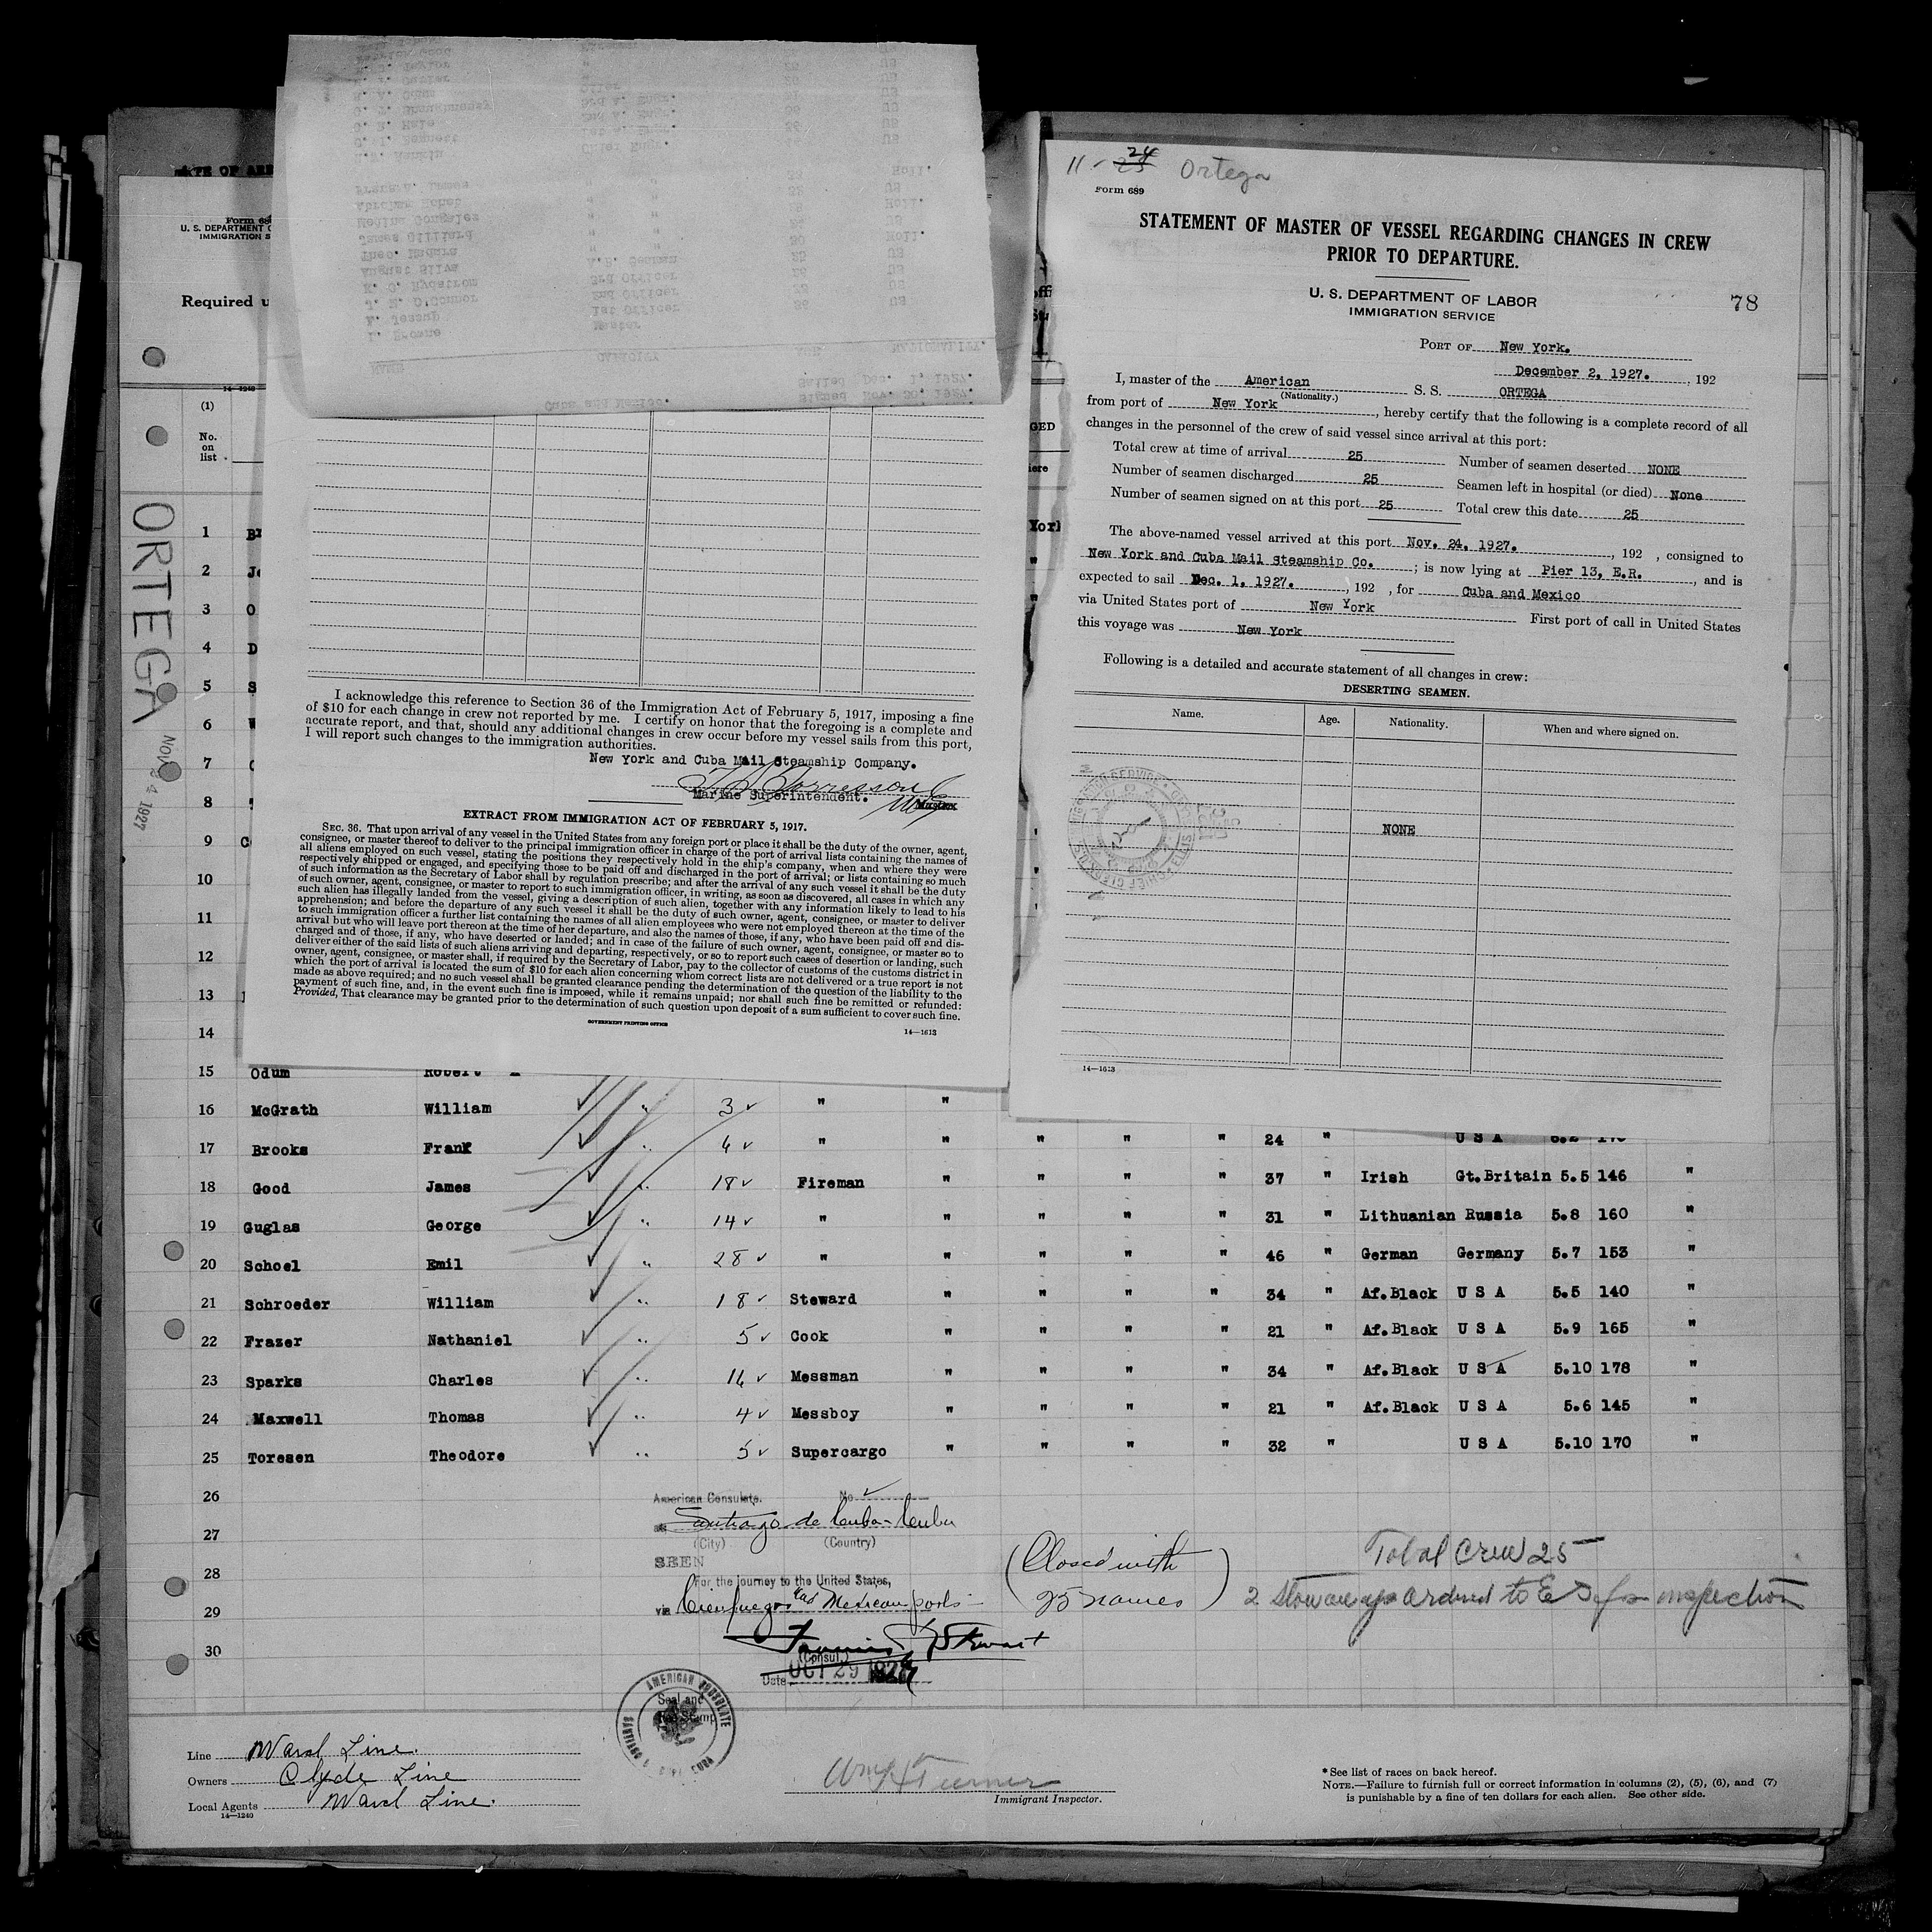 11-24 Ortega
Form 689
STATEMENT OF MASTER OF VESSEL REGARDING CHANGES IN CREW
PRIOR TO DEPARTURE.
U. S. DEPARTMENT OF LABOR
IMMIGRATION SERVICE
78
PORT OF New York.
December 2, 1927. , 192
I, master of the American S. S. ORTEGA
(Nationality.)
from port of New York , hereby certify that the following is a complete record of all
changes in the personnel of the crew of said vessel since arrival at this port:
Total crew at time of arrival 25 Number of seamen deserted NONE
Number of seamen discharged 25 Seamen left in hospital (or died) None
Number of seamen signed on at this port 25 Total crew this date 25
The above-named vessel arrived at this port Nov. 24, 1927. , 192 , consigned to
New York and Cuba Mail Steamship Co. ; is now lying at Pier 13, E.R. , and is
expected to sail Dec. 1, 1927. , 192 , for Cuba and Mexico
via United States port of New York First port of call in United States
this voyage was New York
Following is a detailed and accurate statement of all changes in crew:
DESERTING SEAMEN.
Name. Age. Nationality. When and where signed on.
NONE
14—1613
I acknowledge this reference to Section 36 of the Immigration Act of February 5, 1917, imposing a fine
of $10 for each change in crew not reported by me. I certify on honor that the foregoing is a complete and
accurate report, and that, should any additional changes in crew occur before my vessel sails from this port,
I will report such changes to the immigration authorities.
New York and Cuba Mail Steamship Company.
Marine Superintendent. Master
EXTRACT FROM IMMIGRATION ACT OF FEBRUARY 5, 1917.
SEC. 36. That upon arrival of any vessel in the United States from any foreign port or place it shall be the duty of the owner, agent,
consignee, or master thereof to deliver to the principal immigration officer in charge of the port of arrival lists containing the names of
all aliens employed on such vessel, stating the positions they respectively hold in the ship's company, when and where they were
respectively shipped or engaged, and specifying those to be paid off and discharged in the port of arrival; or lists containing so much
of such information as the Secretary of Labor shall by regulation prescribe; and after the arrival of any such vessel it shall be the duty
of such owner, agent, consignee, or master to report to such immigration officer, in writing, as soon as discovered, all cases in which any
such alien has illegally landed from the vessel, giving a description of such alien, together with any information likely to lead to his
apprehension; and before the departure of any such vessel it shall be the duty of such owner, agent, consignee, or master to deliver
to such immigration officer a further list containing the names of all alien employees who were not employed thereon at the time of the
arrival but who will leave port thereon at the time of her departure, and also the names of those, if any, who have been paid off and dis-
charged and of those, if any, who have deserted or landed; and in case of the failure of such owner, agent, consignee, or master so to
deliver either of the said lists of such aliens arriving and departing, respectively, or so to report such cases of desertion or landing, such
owner, agent, consignee, or master shall, if required by the Secretary of Labor, pay to the collector of customs of the customs district in
which the port of arrival is located the sum of $10 for each alien concerning whom correct lists are not delivered or a true report is not
made as above required; and no such vessel shall be granted clearance pending the determination of the question of the liability to the
payment of such fine, and, in the event such fine is imposed, while it remains unpaid; nor shall such fine be remitted or refunded:
Provided, That clearance may be granted prior to the determination of such question upon deposit of a sum sufficient to cover such fine.
GOVERNMENT PRINTING OFFICE
14—1613
U. S. DEPARTMENT
IMMIGRATION
Required
14—1240
(1)
No.
on
list
ORTEGA
NOV 24 1927
1
2
3
4
5
6
7
8
9
10
11
12
13
14
15 Odum Robert
16 McGrath William 3 " "
17 Brooks Frank 4 " " " " " 24 " U S A
18 Good James 18 Fireman " " " " 37 " Irish Gt.Britain 5.5 146 "
19 Guglas George 14 " " " " " 31 " Lithuanian Russia 5.8 160 "
20 Schoel Emil 28 " " " " " 46 " German Germany 5.7 153 "
21 Schroeder William 18 Steward " " " " 34 " Af.Black U S A 5.5 140 "
22 Frazer Nathaniel 5 Cook " " " " 21 " Af.Black U S A 5.9 165 "
23 Sparks Charles 16 Messman " " " " 34 " Af.Black U S A 5.10 178 "
24 Maxwell Thomas 4 Messboy " " " " 21 " Af.Black U S A 5.6 145 "
25 Toresen Theodore 5 Supercargo " " " " 32 " U S A 5.10 170 "
26
27
28
29
30
American Consulate. No.
at Santiago de Cuba - Cuba
(City) (Country)
SEEN
For the journey to the United States,
via Cienfuegos and Mexican ports
(Consul.)
Date OCT 29 1927
(Closed with
25 names)
Total Crew 25
2 Stowaways ordered to E I for inspection
AMERICAN CONSULATE
Seal and
Fee Stamp
Line Ward Line.
Owners Clyde Line
Local Agents Ward Line.
14—1240
Wm H Turner
Immigrant Inspector.
* See list of races on back hereof.
NOTE.—Failure to furnish full or correct information in columns (2), (5), (6), and (7)
is punishable by a fine of ten dollars for each alien. See other side.